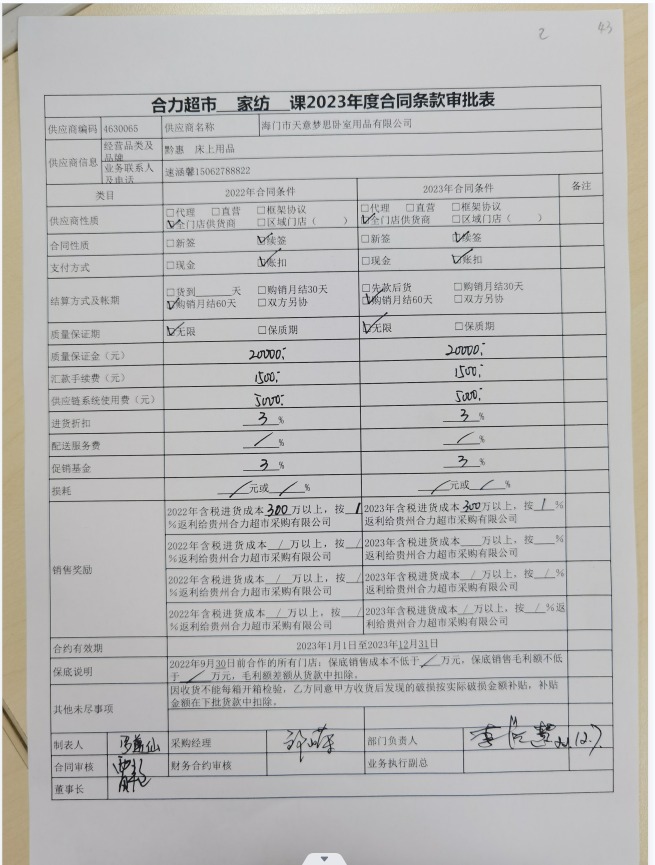 43
合力超市 家纺 课2023年度合同条款审批表
供应商编码 4630065 供应商名称 海门市天意梦思卧室用品有限公司
供应商信息 经营品类及品牌 黔惠 床上用品
业务联系人及电话 速涵馨15062788822
类目 2022年合同条件 2023年合同条件 备注
供应商性质 □代理 □直营 □框架协议 □代理 □直营 □框架协议
☑全门店供货商 □区域门店（ ） ☑全门店供货商 □区域门店（ ）
合同性质 □新签 ☑续签 □新签 ☑续签
支付方式 □现金 ☑账扣 □现金 ☑账扣
结算方式及账期 □货到____天 □购销月结30天 □先款后货 □购销月结30天
☑购销月结60天 □双方另协 ☑购销月结60天 □双方另协
质量保证期 ☑无限 □保质期 ☑无限 □保质期
质量保证金（元） 20000; 20000;
汇款手续费（元） 1500; 1500;
供应链系统使用费（元） 5000; 5000;
进货折扣 3 % 3 %
配送服务费 / % / %
促销基金 3 % 3 %
损耗 / 元或 / % / 元或 / %
销售奖励 2022年含税进货成本 300 万以上，按 1 2023年含税进货成本 300 万以上，按 1 %
%返利给贵州合力超市采购有限公司 返利给贵州合力超市采购有限公司
2022年含税进货成本 / 万以上，按 / 2023年含税进货成本____万以上，按___%
%返利给贵州合力超市采购有限公司 返利给贵州合力超市采购有限公司
2022年含税进货成本 / 万以上，按 / 2023年含税进货成本 / 万以上，按 / %
%返利给贵州合力超市采购有限公司 返利给贵州合力超市采购有限公司
2022年含税进货成本 / 万以上，按 / 2023年含税进货成本 / 万以上，按 / %返
%返利给贵州合力超市采购有限公司 利给贵州合力超市采购有限公司
合约有效期 2023年1月1日至2023年12月31日
保底说明 2022年9月30日前合作的所有门店；保底销售成本不低于 / 万元，保底销售毛利额不低
于 / 万元，毛利额差额从货款中扣除。
其他未尽事项 因收货不能每箱开箱检验，乙方同意甲方收货后发现的破损按实际破损金额补贴，补贴
金额在下批货款中扣除。
制表人 采购经理 部门负责人 12.7
合同审核 财务合约审核 业务执行副总
董事长